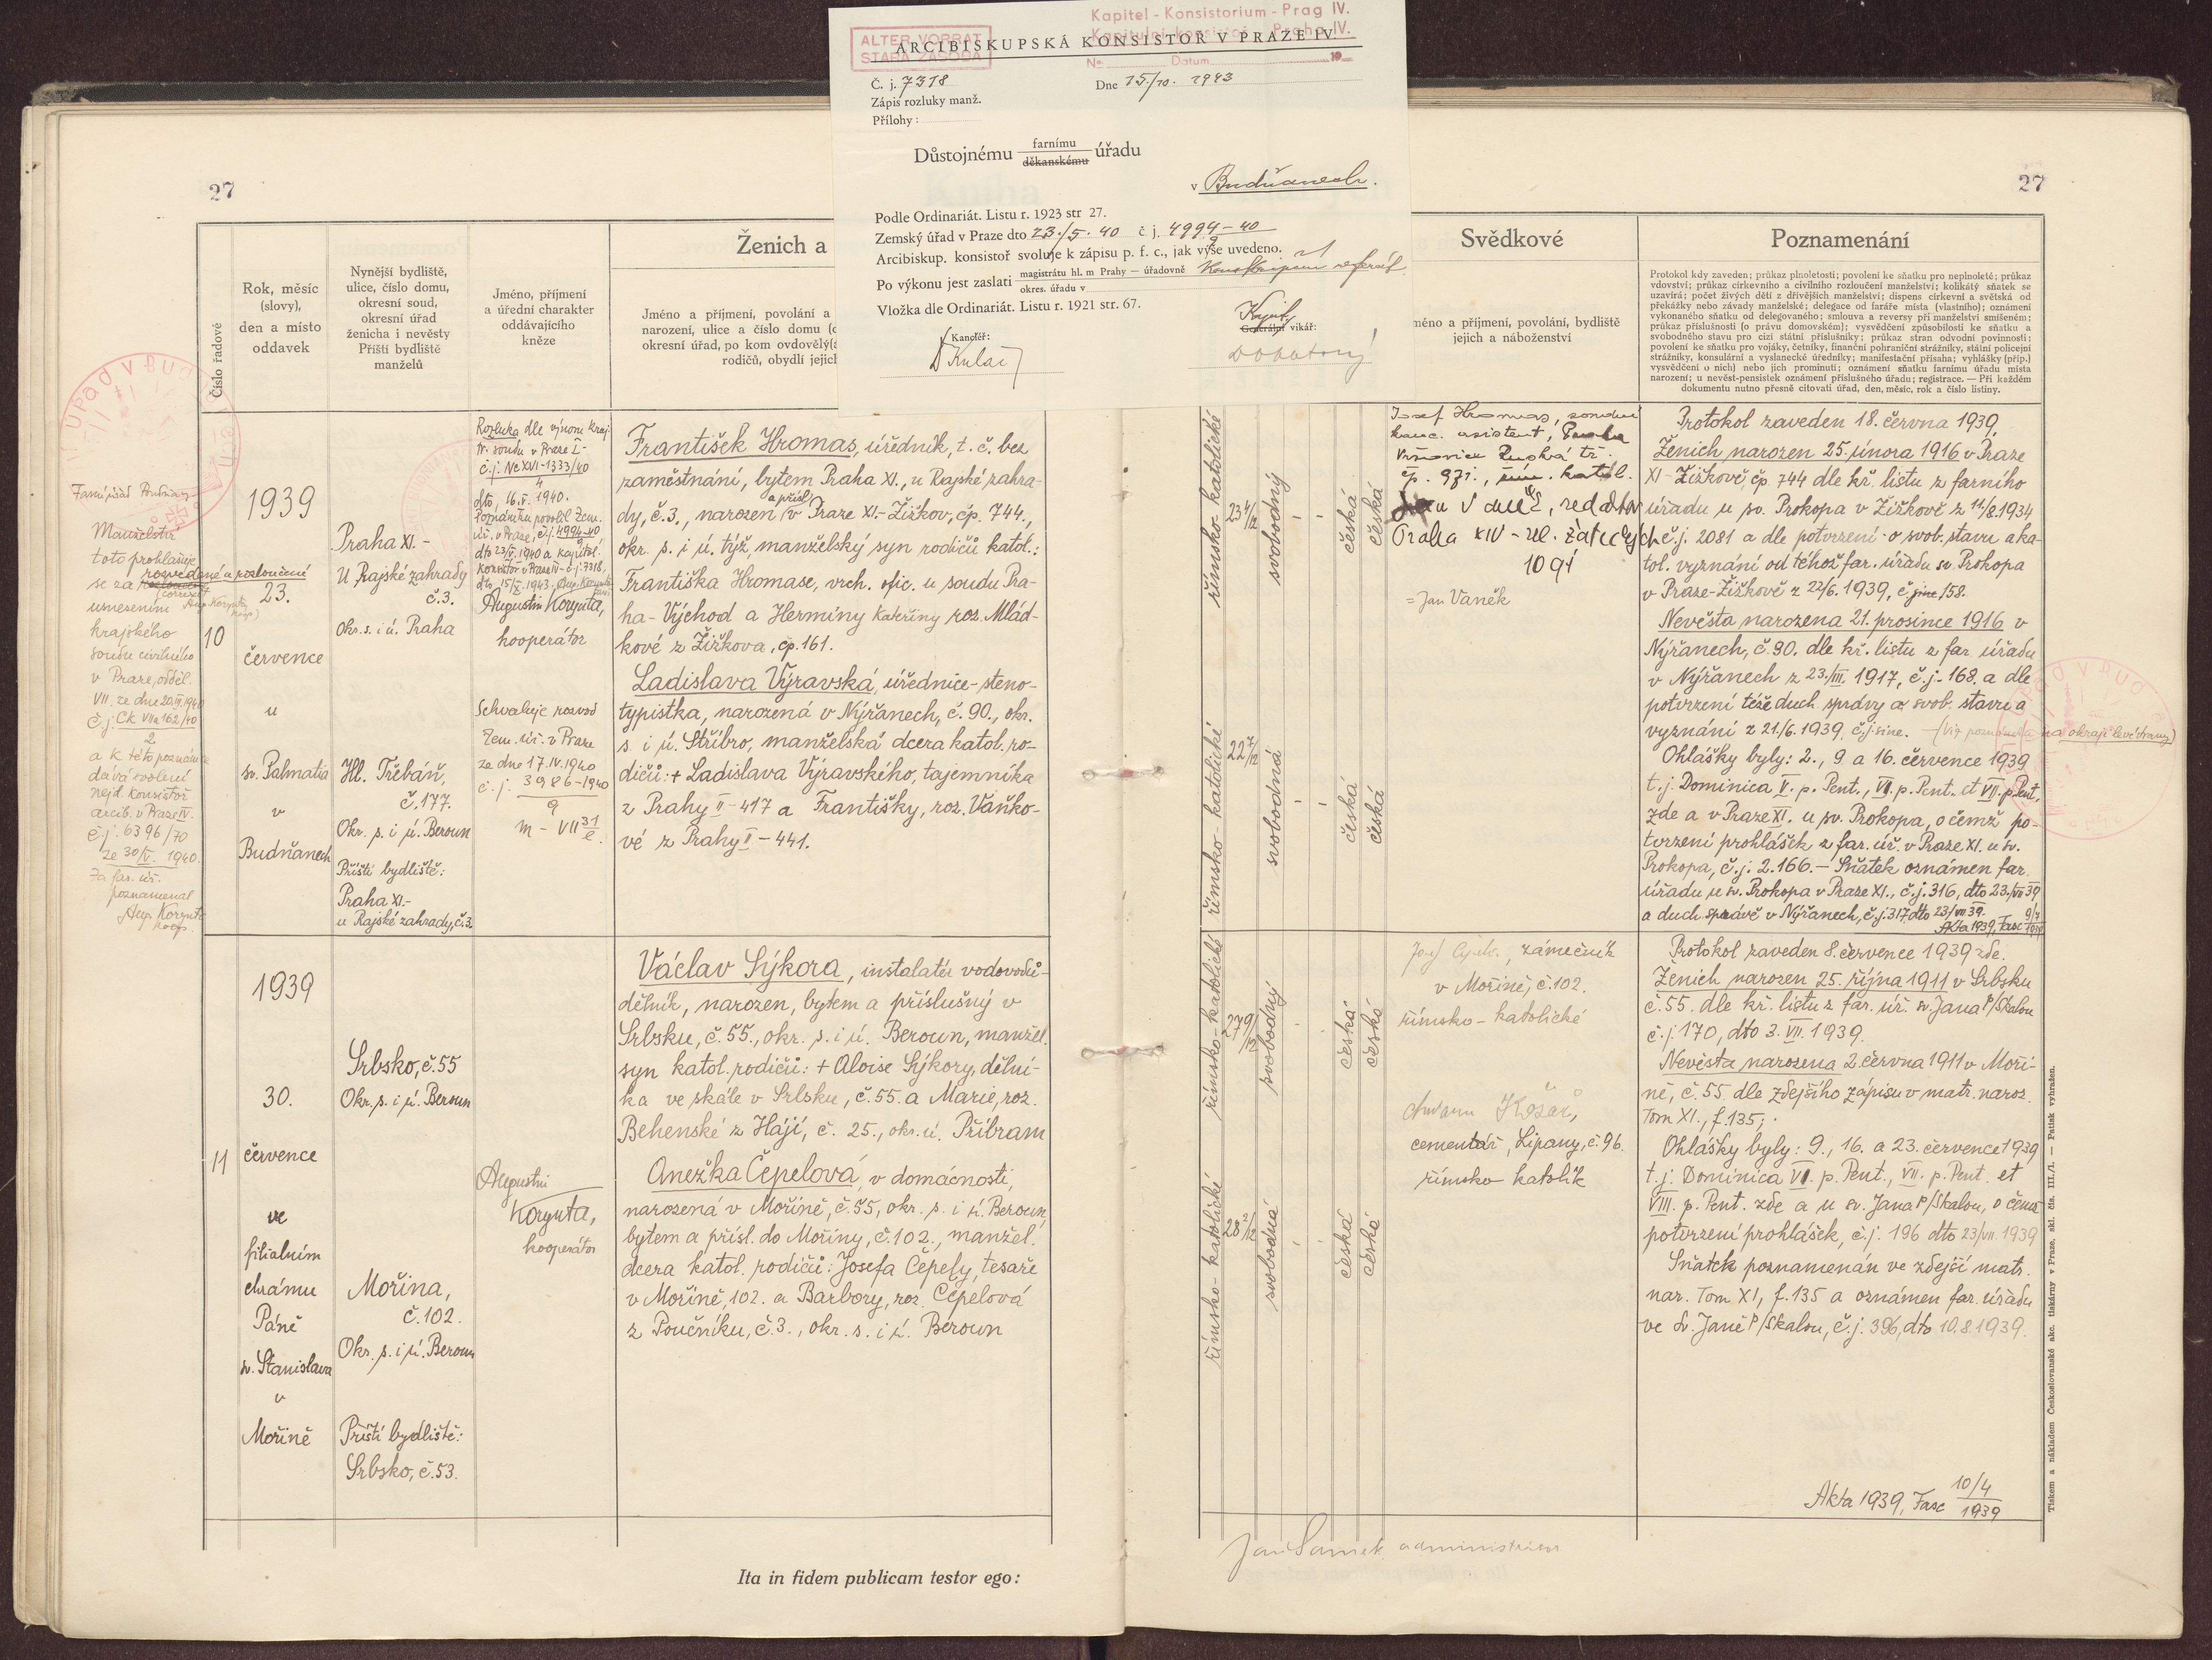 Kapitel - Konsistorium - Prag IV.
Kapitulní konsistoř - Praha IV.
ALTER VORRAT
STARÁ ZÁSOBA
ARCIBISKUPSKÁ KONSISTOŘ V PRAZE IV.
No. Datum 19
Č. j. 7318
Dne 15./10. 1943
Zápis rozluky manž.
Přílohy:
Důstojnému farnímu děkanskému úřadu
v Budňanech.
Podle Ordinariát. Listu r. 1923 str 27.
Zemský úřad v Praze dto 23./5. 40 č j. 4994-40
9
Arcibiskup. konsistoř svoluje k zápisu p. f. c., jak výše uvedeno.
Po výkonu jest zaslati magistrátu hl. m Prahy — úřadovně
okres. úřadu v
Vložka dle Ordinariát. Listu r. 1921 str. 67.
Kancléř:
Generální vikář:
27
27
Ženich a
Číslo řadové
Rok, měsíc
(slovy),
den a místo
oddavek
Nynější bydliště,
ulice, číslo domu,
okresní soud,
okresní úřad
ženicha i nevěsty
Příští bydliště
manželů
Jméno, příjmení
a úřední charakter
oddávajícího
kněze
Jméno a příjmení, povolání a
narození, ulice a číslo domu (
okresní úřad, po kom ovdověl(
rodičů, obydlí jejich
Svědkové
méno a příjmení, povolání, bydliště
jejich a náboženství
Poznamenání
Protokol kdy zaveden; průkaz plnoletosti; povolení ke sňatku pro neplnoleté; průkaz
vdovství; průkaz církevního a civilního rozloučení manželství; kolikátý sňatek se
uzavírá; počet živých dětí z dřívějších manželství; dispens církevní a světská od
překážky nebo závady manželské; delegace od faráře místa (vlastního); oznámení
vykonaného sňatku od delegovaného; smlouva a reversy při manželství smíšeném;
průkaz příslušnosti (o právu domovském); vysvědčení způsobilosti ke sňatku a
svobodného stavu pro cizí státní příslušníky; průkaz stran odvodní povinnosti;
povolení ke sňatku pro vojáky, četníky, finanční pohraniční strážníky, státní policejní
strážníky, konsulární a vyslanecké úředníky; manifestační přísaha; vyhlášky (příp.)
vysvědčení o nich) nebo jich prominutí; oznámení sňatku farnímu úřadu místa
narození; u nevěst-pensistek oznámení příslušného úřadu; registrace. — Při každém
dokumentu nutno přesně citovati úřad, den, měsíc, rok a číslo listiny.
Manželství
toto prohlašuje
se za rozvedené a rozloučené
usnesením
krajského
soudu civilního
v Praze, odděl.
VII. ze dne 20.III.1940
č.j. Ck VIIa 162/40
2
a k této poznámce
dává svolení
nejd. konsistoř
arcib. v Praze IV.
č.j. 6396/70
ze 30/V. 1940.
Za far. úř.
poznamenal
Aug. Korynta
koop.
10
1939
23.
července
u
sv. Palmatia
v
Budňanech
Praha XI.-
U Rajské zahrady
č.3.
Okr. s. i ú. Praha
Hl. Třebáň,
č.177.
Okr. s. i ú. Beroun
Příští bydliště:
Praha XI.-
u Rajské zahrady, č.3.
Rozluka dle výnosu kraj.
tr. soudu v Praze I-
č.j. Nc XVI-1333/40
4
dto, 16.V. 1940.
Poznámku povolil Zem.
úř. v Praze, č.j. 4994-40
9
dto 23/V. 1940 a kapitul.
konsistoř v Praze IV - č.j. 7318,
dto, 15/X. 1943. Aug. Korynta
Augustin Korynta,
kooperátor
Schvaluje rozvod
Zem. úř. v Praze
ze dne 17.IV.1940
č.j. 3986-1940
9
m - VII 31/e
František Hromas, úředník, t. č. bez
zaměstnání, bytem Praha XI., u Rajské zahra-
dy, č.3., narozen a přísl. v Praze XI.- Žižkov, čp. 744.,
okr. s. i ú. týž, manželský syn rodičů katol.:
Františka Hromase, vrch. ofic. u soudu Pra-
ha - Východ a Herminy Kateřiny roz. Mlád-
kové z Žižkova, čp. 161.
Ladislava Výravská, úřednice - steno-
typistka, narozená v Nýřanech, č. 90., okr.
s. i ú. Stříbro, manželská dcera katol. ro-
dičů: + Ladislava Výravského, tajemníka
z Prahy II - 417 a Františky, roz. Vaňko-
vé z Prahy II - 441.
římsko-katolické
23 4/12
svobodný
česká
česká
římsko-katolické
22 7/12
svobodná
česká
česká
Josef Hromas, soudní
kanc. asistent, Praha
Vršovice Ruská tř.
čp. 971., řím. katol.
Jan Vaněk, redaktor
Praha XIV - ul. Žateckých
1091
= Jan Vaněk
Protokol zaveden 18. června 1939.
Ženich narozen 25. února 1916 v Praze
XI - Žižkově, čp. 744 dle kř. listu z farního
úřadu u sv. Prokopa v Žižkově z 11/8.1934
č.j. 2081 a dle potvrzení o svob. stavu a ka-
tol. vyznání od téhož far. úřadu sv. Prokopa
v Praze-Žižkově z 22/6. 1939, č. sine 158.
Nevěsta narozena 21. prosince 1916 v
Nýřanech, č. 90. dle kř. listu z far úřadu
v Nýřanech z 23./III. 1917, č.j. 168. a dle
potvrzení téže duch. správy o svob. stavu a
vyznání z 21./6. 1939, č.j. sine. - (Viz poznámka na okraji levé strany)
Ohlášky byly: 2., 9 a 16. července 1939
t.j. Dominica V. p. Pent., VI. p. Pent. et VII. p. Pent.,
zde a v Praze XI. u sv. Prokopa, o čemž po-
tvrzení prohlášek z far. úř. v Praze XI. u sv.
Prokopa, č.j. 2.166. - Sňatek oznámen far.
úřadu u sv. Prokopa v Praze XI., č.j. 316, dto 23./VII 39,
a duch. správě v Nýřanech, č.j. 317, dto 23/VII 39.
Akta 1939, Fasc 9/7 1939
11
1939
30.
července
ve
filialním
chrámu
Páně
sv. Stanislava
v
Mořině
Srbsko, č.55
Okr. s. i ú. Beroun
Mořina,
č.102.
Okr. s. i ú. Beroun
Příští bydliště:
Srbsko, č.53.
Augustin
Korynta,
kooperátor
Václav Sýkora, instalatér vodovodů -
dělník, narozen, bytem a příslušný v
Srbsku, č. 55., okr. s. i ú. Beroun, manžel.
syn katol. rodičů: + Aloise Sýkory, dělní-
ka ve skále v Srbsku, č.55. a Marie, roz.
Behenské z Hájí, č. 25., okr. ú. Příbram
Anežka Čepelová, v domácnosti,
narozená v Mořině, č.55, okr. s. i ú. Beroun,
bytem a přísl. do Mořiny, č.102., manžel.
dcera katol. rodičů: Josefa Čepely, tesaře
v Mořině, 102. a Barbory, roz. Čepelová
z Poučníku, č.3., okr. s. i ú. Beroun
římsko-katolické
27 9/12
svobodný
česká
česká
římsko-katolické
28 2/12
svobodná
česká
česká
zámečník
v Mořině, č.102.
římsko-katolické
cementář, Lipany, č.96.
římsko katolík
Protokol zaveden 8. července 1939 zde.
Ženich narozen 25. října 1911 v Srbsku
č.55. dle kř. listu z far. úř. sv. Jana p/Skalou
č.j. 170, dto 3. VII. 1939.
Nevěsta narozena 2. června 1911 v Moři-
ně, č. 55. dle zdejšího zápisu v matr. naroz.
Tom XI., f. 135;
Ohlášky byly: 9., 16. a 23. července 1939
t.j. Dominica VI. p. Pent., VII. p. Pent. et
VIII. p. Pent. zde a u sv. Jana p/Skalou, o čemž
potvrzení prohlášek, č.j. 196 dto 23/VII. 1939
Sňatek poznamenán ve zdejší matr.
nar. Tom XI, f. 135 a oznámen far. úřadu
ve Sv. Janě p/Skalou, č.j. 396, dto 10.8.1939.
Akta 1939, Fasc 10/4 1939
Jan Samek administrátor
Ita in fidem publicam testor ego:
Tiskem a nákladem Českoslovanské akc. tiskárny v Praze. skl. čís. III./1. — Patisk vyhražen.